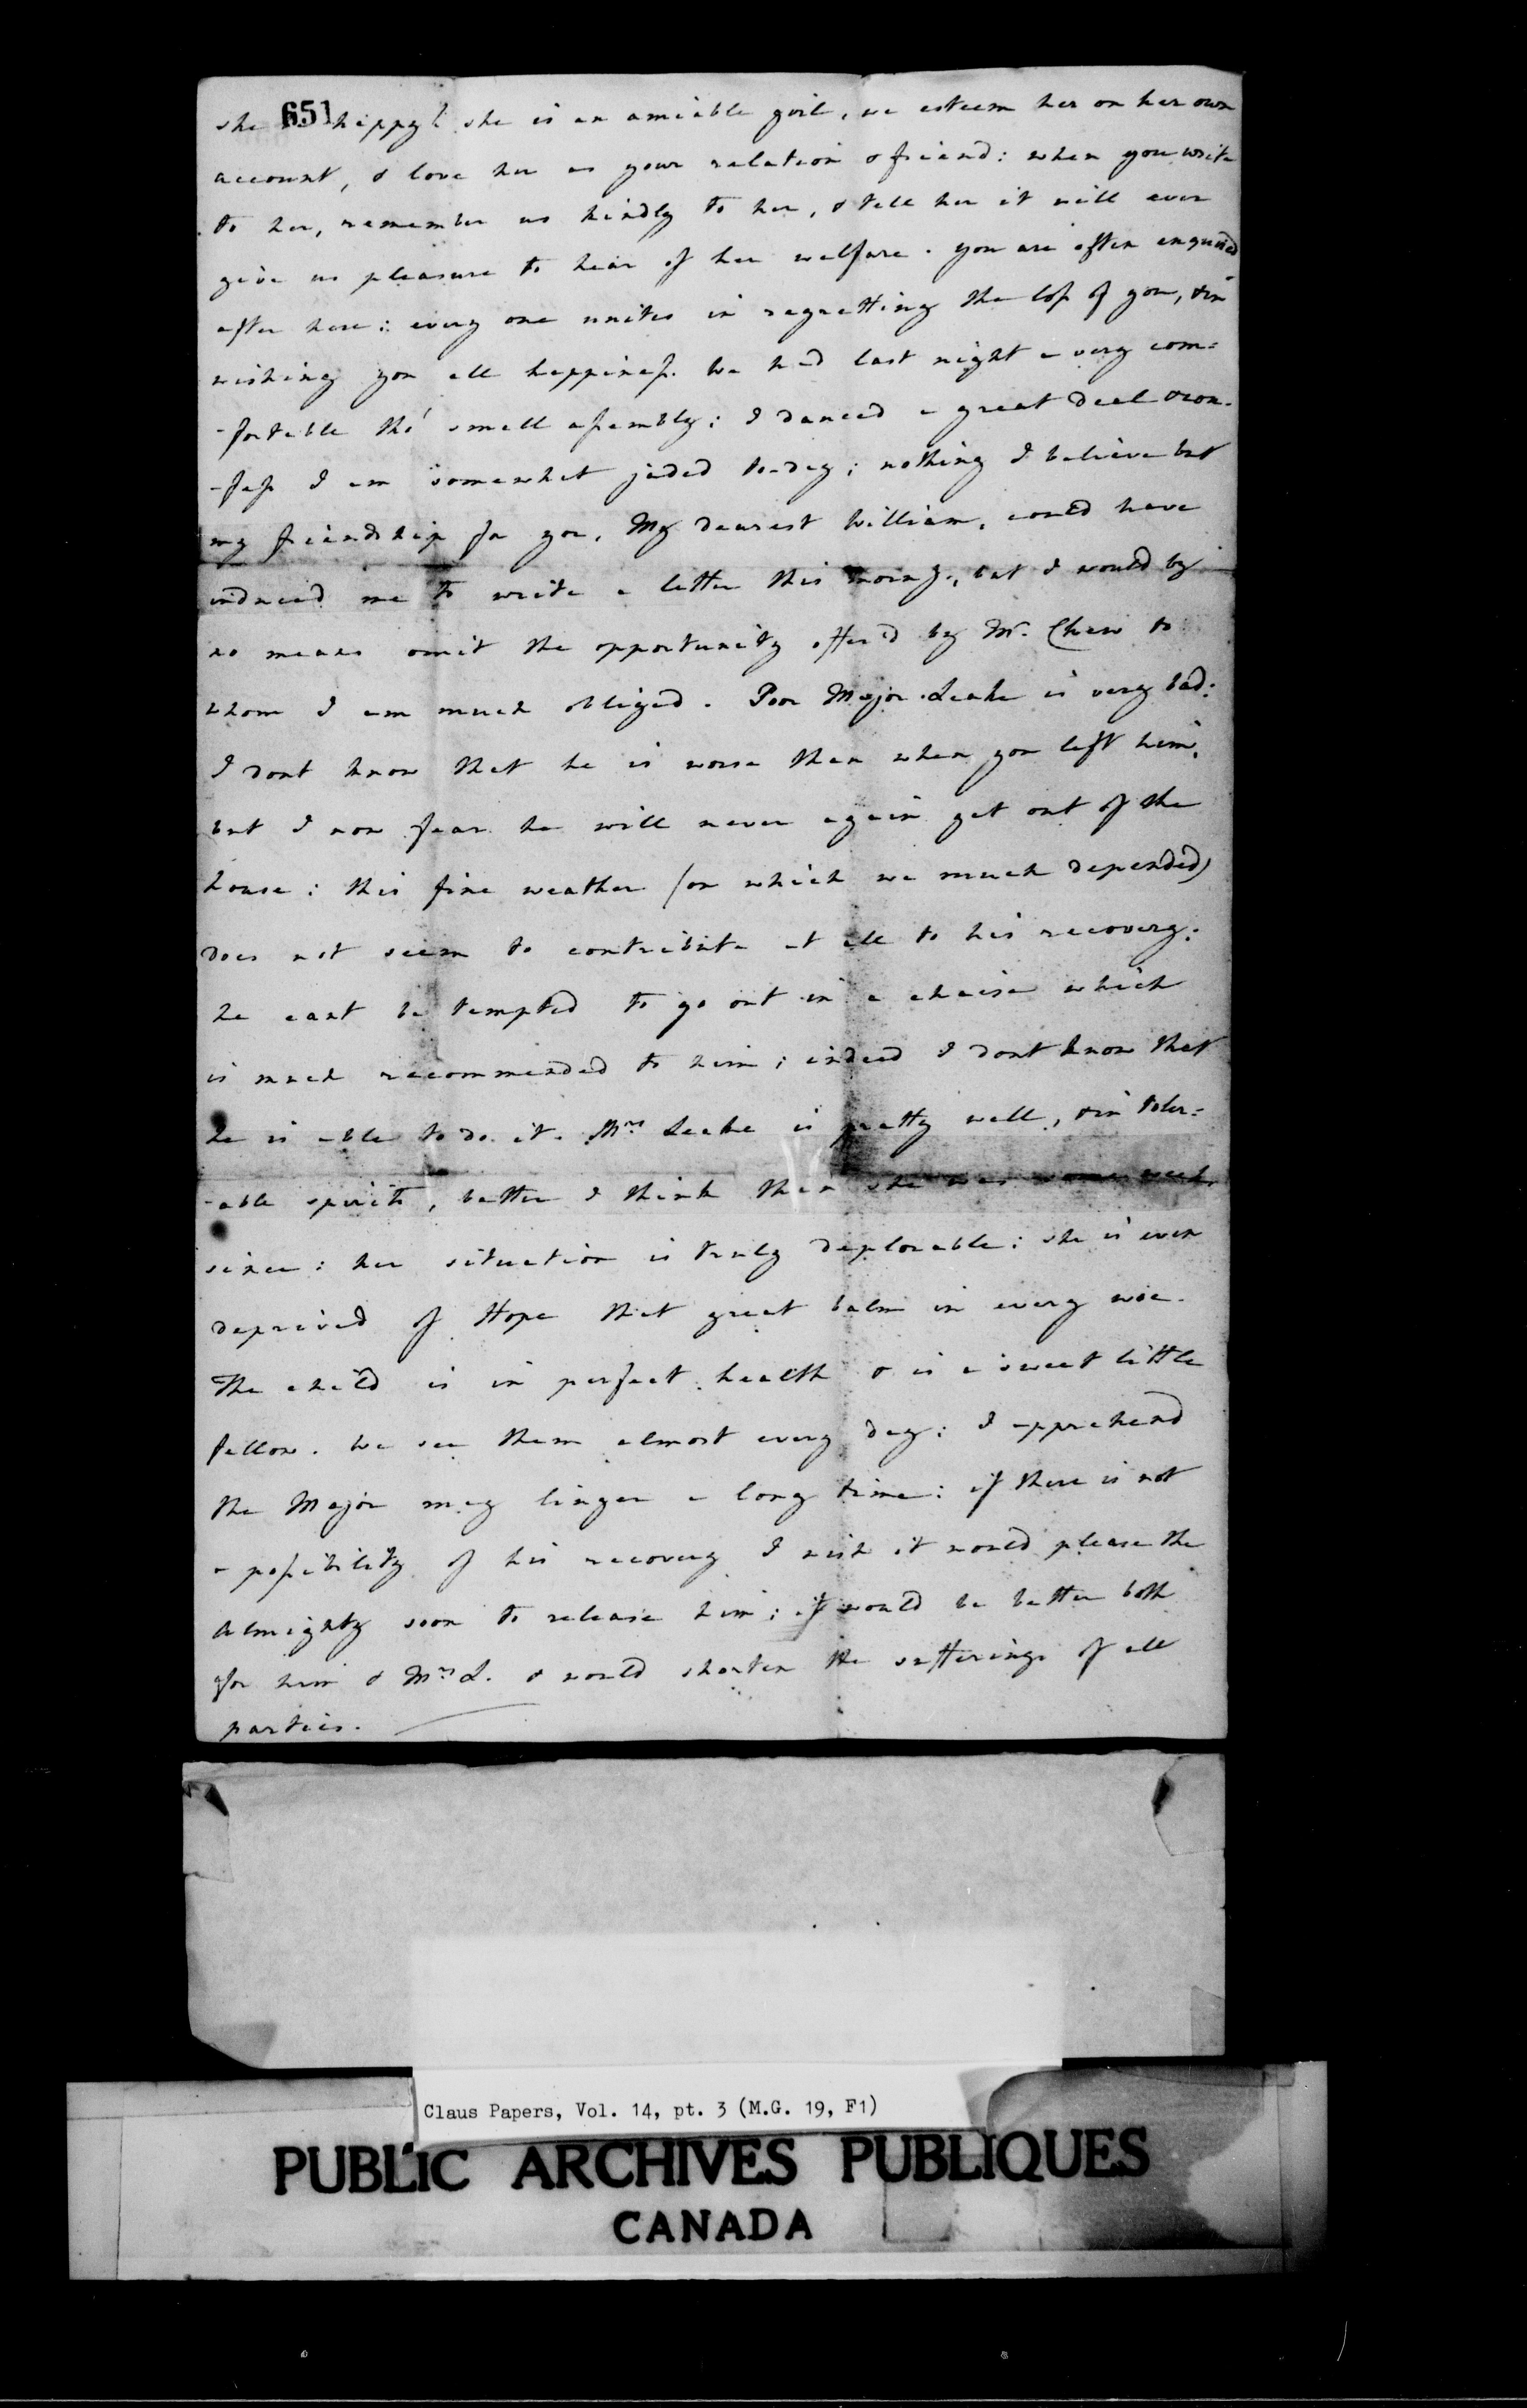 651
she happy! she is an amiable girl, we esteem her on her own
account, & love her as your relation & friend: when you write
to her, remember us kindly to her, & tell her it will ever
give us pleasure to hear of her welfare. you are often enquired
after here: every one unites in regretting the loss of you, & in
wishing you all happiness. We had last night a very com=
-fortable tho' small assembly: I danced a great deal & con-
-fess I am somewhat jaded to-day; nothing I believe but
my friendship for you, My dearest William, could have
induced me to write a letter this morng., but I would by
no means omit the opportunity offer'd by Mr. Chew to
whom I am much obliged. Poor Major Leake is very bad:
I dont know that he is worse than when you left him,
but I now fear he will never again get out of the
house: this fine weather (on which we much depended)
does not seem to contribute at all to his recovery:
he cant be tempted to go out in a chaise which
is much recommended to him; indeed I dont know that
he is able to do it. Mrs Leake is pretty well, & in toler=
-able spirits, better I think than she was some weeks
since: her situation is truly deplorable: she is even
deprived of Hope that great balm in every woe.
The child is in perfect health & is a sweet little
fellow. We see them almost every day: I apprehend
the Major may linger a long time: if there is not
a possibility of his recovery I wish it would please the
Almighty soon to release him; it would be better both
for him & Mrs L. & would shorten the sufferings of all
parties.
Claus Papers, Vol. 14, pt. 3 (M.G. 19, F1)
PUBLIC ARCHIVES PUBLIQUES
CANADA